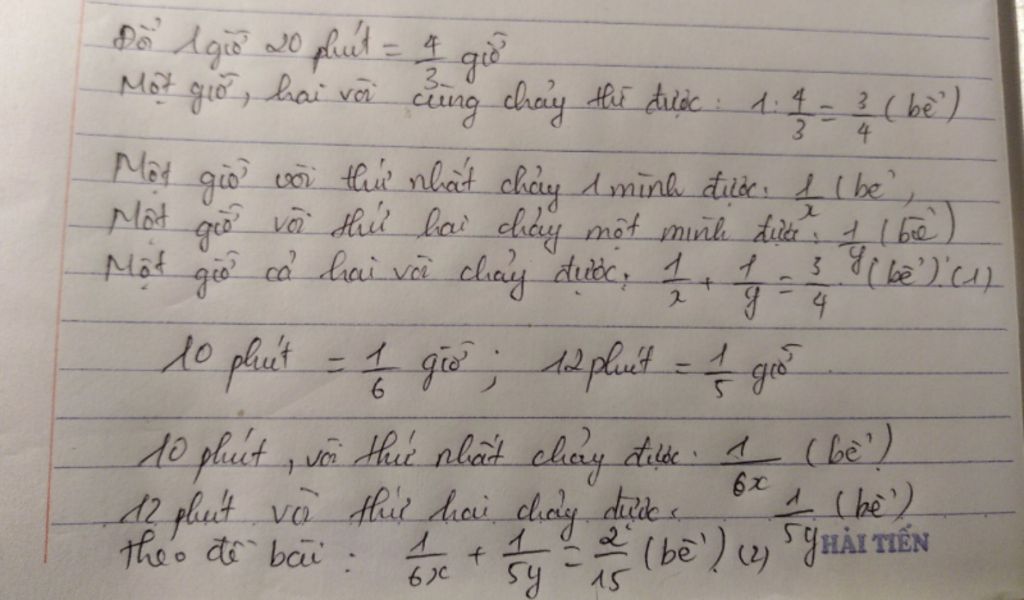 Đổi 1 giờ 20 phút = 4/3 giờ
Một giờ, hai vòi cùng chảy thì được: 1 : 4/3 = 3/4 (bể)
Một giờ vòi thứ nhất chảy 1 mình được: 1/x (bể)
Một giờ vòi thứ hai chảy một mình được: 1/y (bể)
Một giờ cả hai vòi chảy được: 1/x + 1/y = 3/4 (bể) (1)
10 phút = 1/6 giờ ; 12 phút = 1/5 giờ
10 phút, vòi thứ nhất chảy được: 1/6x (bể)
12 phút vòi thứ hai chảy được: 1/5y (bể)
theo đề bài: 1/6x + 1/5y = 2/15 (bể) (2)
HẢI TIẾN